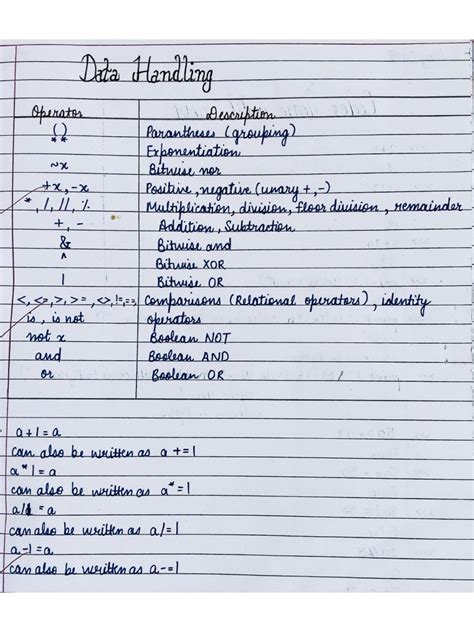 Data Handling
Operator Description
( ) Parantheses (grouping)
** Exponentiation
~x Bitwise nor
+x, -x Positive, negative (unary +, -)
*, /, //, % Multiplication, division, floor division, remainder
+, - Addition, Subtraction
& Bitwise and
^ Bitwise XOR
| Bitwise OR
<, <=, >, >=, <>, !=, == Comparisons (Relational operators), identity
is, is not operators
not x Boolean NOT
and Boolean AND
or Boolean OR
a+1=a
can also be written as a+=1
a*1=a
can also be written as a*=1
a/1=a
can also be written as a/=1
a-1=a
can also be written as a-=1